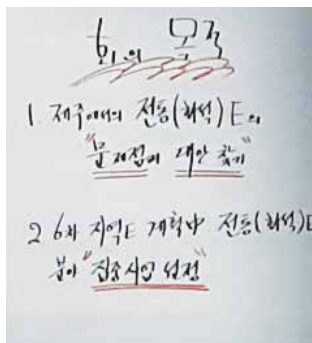 회의 목적
1. 제주에서의 전통(화석)E의
"문제점과 대안 찾기"
2 6차 지역E 계획中 전통(화석)E
분야 "집중사업 선정"